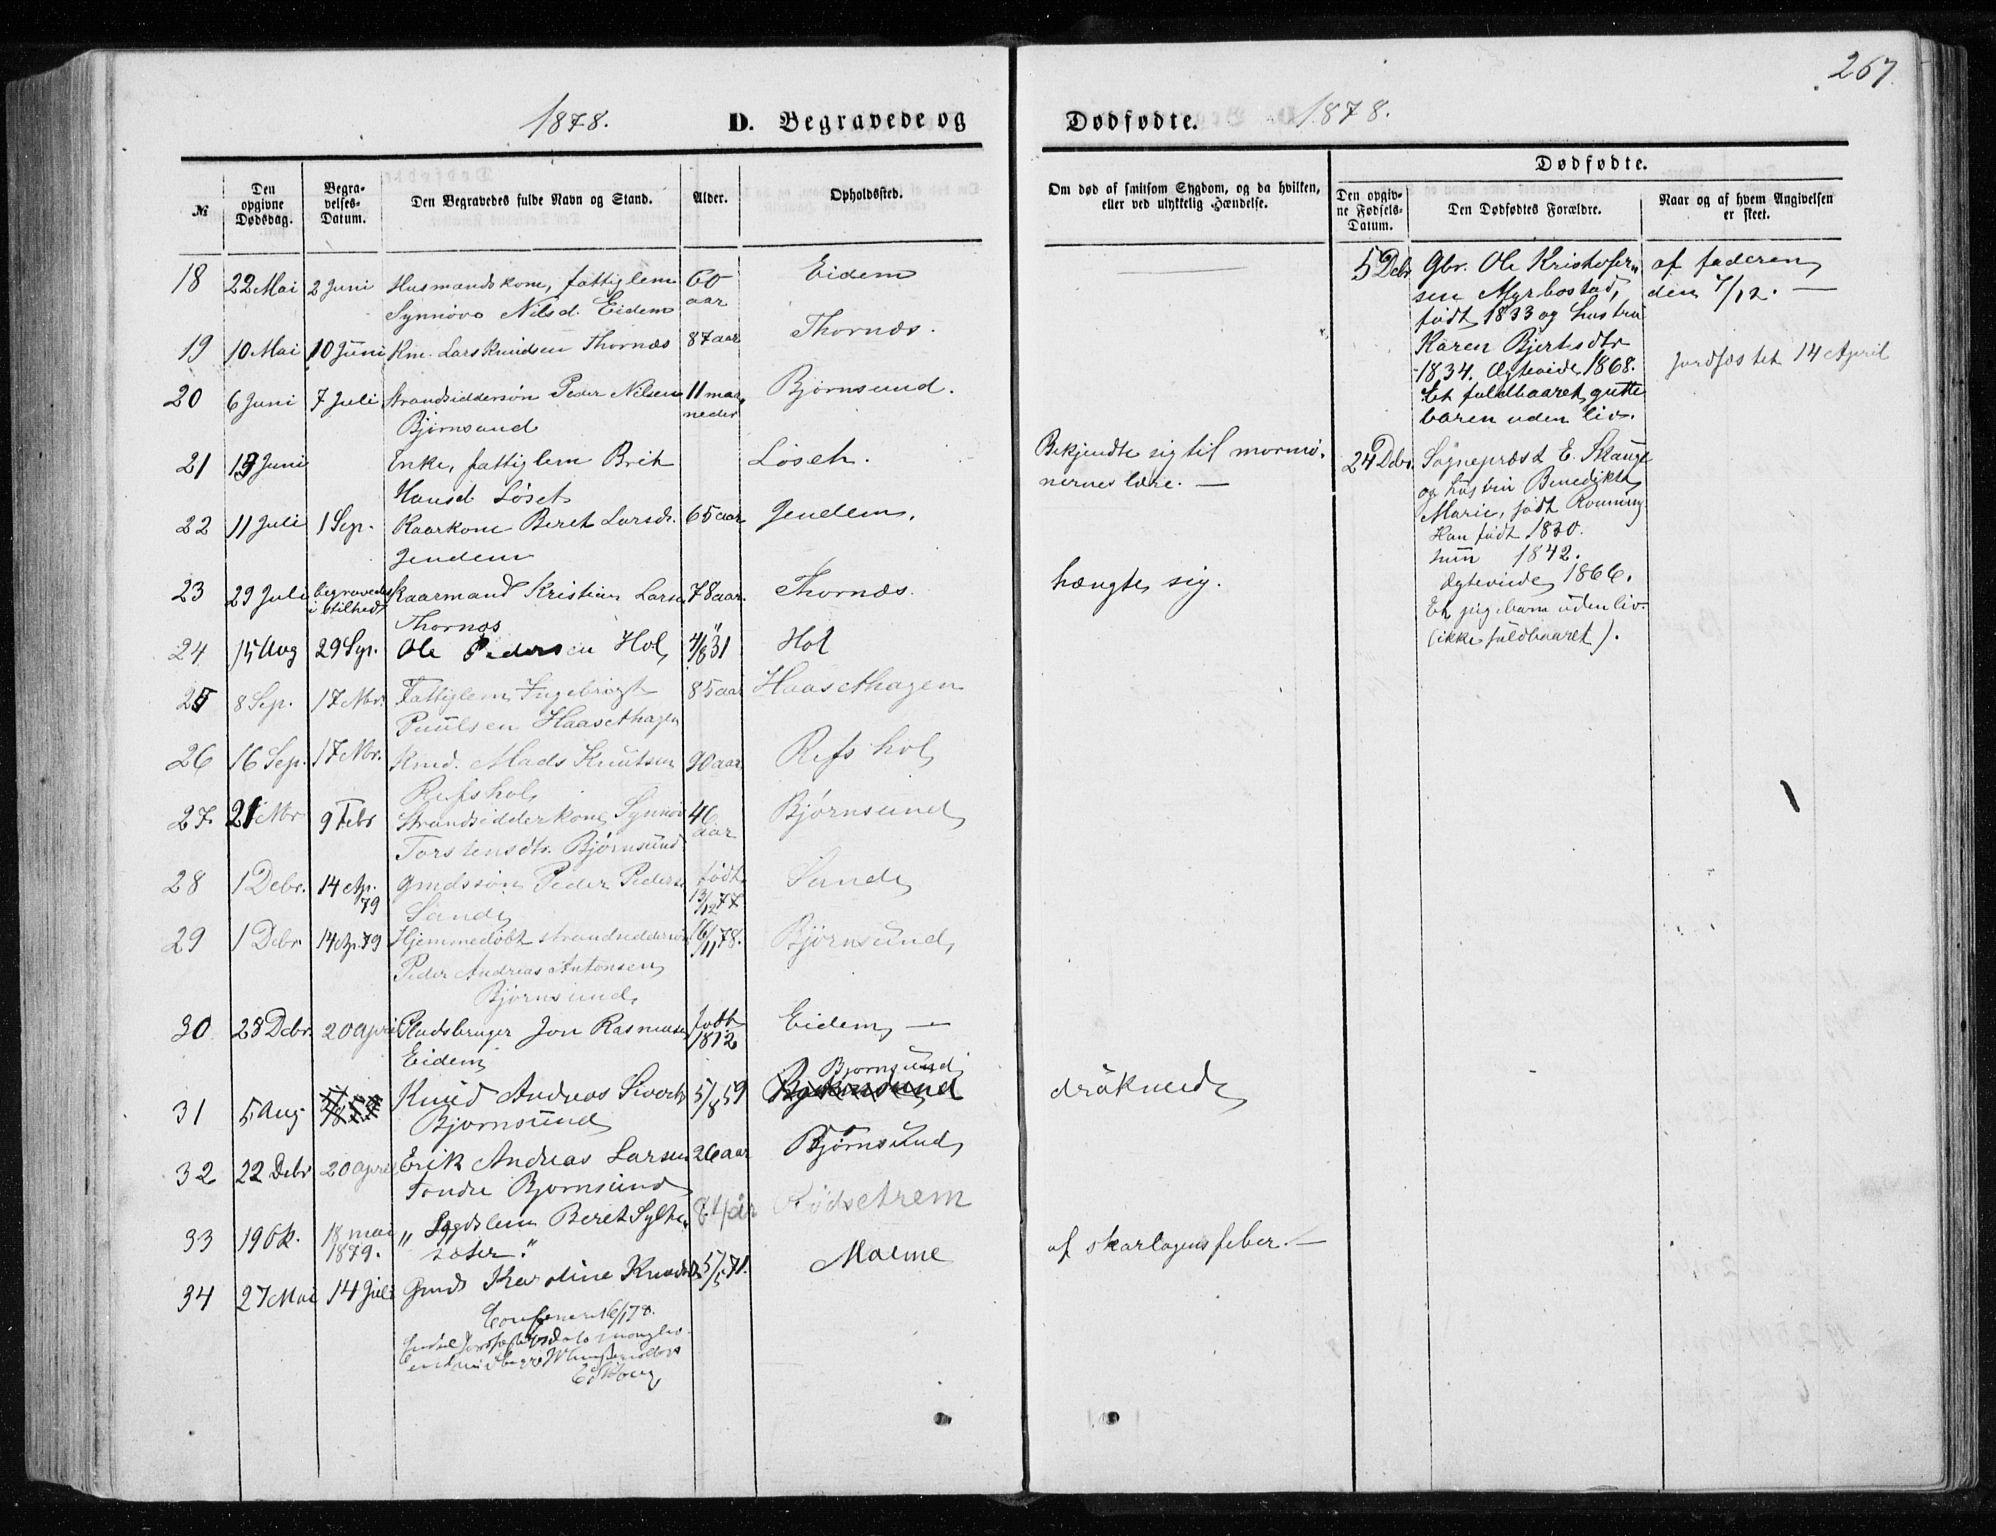 267.
1878.
D. Begravede og
Dødfødte.
1878.
№
Den opgivne Dødsdag.
Begravelses-Datum.
Den Begravedes fulde Navn og Stand.
Alder.
Opholdssted.
Om død af smitsom Sygdom, og da hvilken, eller ved ulykkelig Hændelse.
Dødfødte.
Den opgivne Fødsels-Datum.
Den Dødfødtes Forældre.
Naar og af hvem Angivelsen er skeet.
18 22 Mai 2 Juni Husmandskone, fattiglem 60 aar Eidem
Synnøve Nilsd. Eidem
19 10 Mai 10 Juni Km. Lars Knudsen Thornæs 87 aar Thornæs.
20 6 Juni 7 Juli Strandsiddersøn Peder Nilsen 11 maaneder Bjørnsund.
Bjørnsund
21 19 Juni Enke, fattiglem Brit Løset. Bekjendte sig til mormo-
Hansd Løset nernes lære. —
22 11 Juli 1 Sep. Kaarkone Beret Larsd. 65 aar Gendem.
Gendem
23 29 Juli begravedes i stilhed Kaarmand Kristian Larsen 78 aar. Thornæs. hængte sig.
Thornæs
24 15 Aug 29 Sep. Ole Pedersen Hol 4/8 31 Hol
25 8 Sep. 17 Nbr. Fattiglem Ingebrigt 85 aar Haasethagen
Paulsen Haasethagen
26 16 Sep. 17 Nbr. Mads Knutsen 90 aar Refshol
Refshol
27 21 Nbr 9 Febr Strandsidderkone Synnøv 46 aar Bjørnsund
Torstensdtr. Bjørnsund
28 1 Debr. 14 Ap. 79 Gmdssøn Peder Pederse født 13/12 77 Sande
Sande
29 1 Debr. 14 Ap. 79 Hjemmedøbt strandsiddersøn 16/11 78. Bjørnsund
Peder Andreas Antonsen
Bjørnsund
30 28 Debr. 20 april Pladsbruger Jon Rasmusse født 1812 Eidem —
Eidem
31 5 Aug Knud Andreas Siverts 5/8 59 Bjornsund druknede
Bjornsund
32 22 Debr 20 april Erik Andreas Larsen 26 aar Bjørnsund
Fondre Bjornsund
33 19 Ok. 18 mai 1879. " Lægdslem Beret Sylte- 84 år Rødsetrem
sæter."
34 27 Mai 14 Juli Gmds Karoline Knudsd 5/5 71. Malme af skarlagensfeber. —
5 Debr. Gbr. Ole Kristofer-
sen Myrbostad,
født 1833 og hustru
Karen Bjertsdtr
1834. Ægteviede 1868.
Et fuldbaaret gutte-
barn uden liv.
af faderen
den 7/12. —
Jordfæstet 14 April
24 Debr. Sognepræst E. Skauge
og hustru Benedikte
Marie, født Rønning
Han født 1830.
hun 1842.
Ægteviede 1866.
Et pigebarn uden liv.
(ikke fuldbaaret).